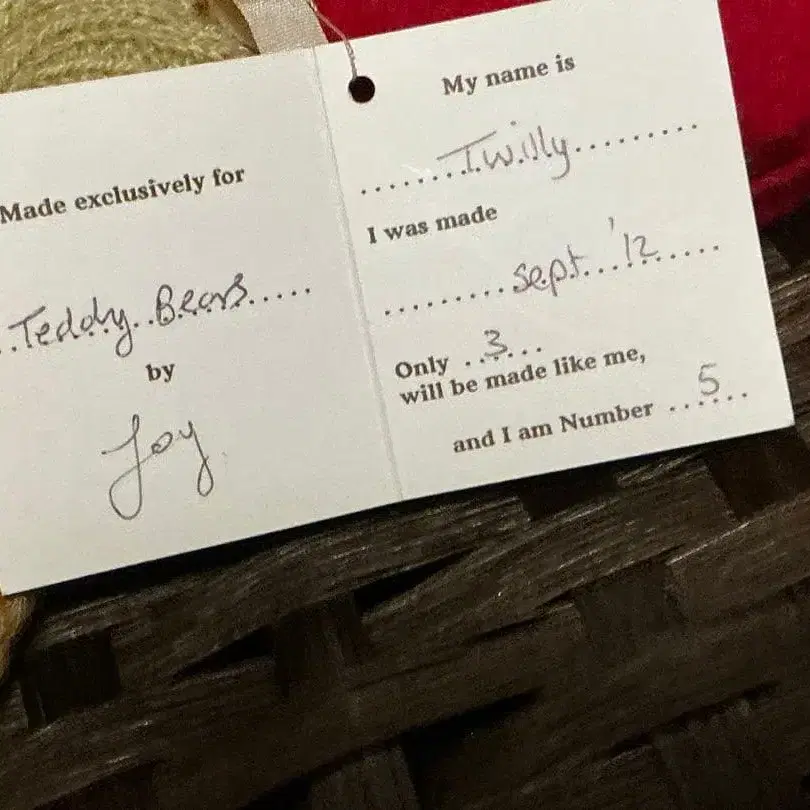 Made exclusively for
Teddy Bears
by
Joy
My name is
Twilly
I was made
Sept. '12
Only 3
will be made like me,
and I am Number 5